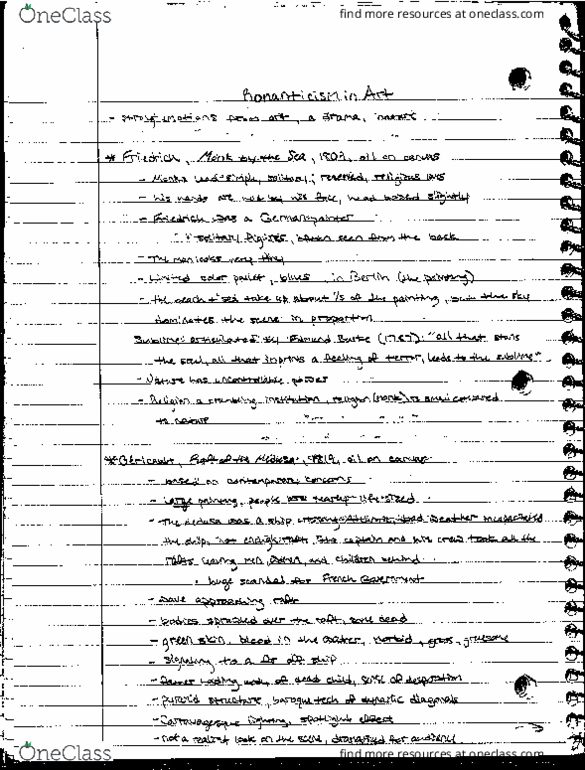 OneClass
find more resources at oneclass.com
Romanticism in Art
- strong emotions from art, a drama,
* Friedrich, Monk by the Sea, 1809, oil on canvas
- Monks lead simple, solitary, reserved, religious lives
- his hands are near by his face, head bowed slightly
- Friedrich was a German painter
solitary figures, often seen from the back
- The man looks very tiny
- Limited color pallet, blues in Berlin (the painting)
- the beach + sea take up about 1/5 of the painting, blue sky
dominates the scene in proportion
Sublime: articulated by Edmund Burke (1757): "all that stuns
the soul, all that imprints a feeling of terror, leads to the sublime"
- Nature has uncontrollable power
- Religion a crumbling institution, religion (monk) is compared
to nature
* Géricault, Raft of the Medusa, 1819, oil on canvas
- based on contemporary concerns
- Large painting, people are nearly life-sized
- The Medusa was a ship, bad weather
the ship, not enough rafts, the captain and his crew took all the
rafts, leaving men, women, and children behind
• huge scandal for French Government
- wave approaching raft
- bodies sprawled over the raft, some dead
- green skin, blood in the water, morbid, gross, gruesome
- signaling to a far off ship
- father holding body of dead child, sense of desperation
- pyramid structure, baroque tech of dynamic diagonals
- Caravaggesque lighting, spotlight effect
- not a realist look on the scene, dramatized for audience
OneClass
find more resources at oneclass.com